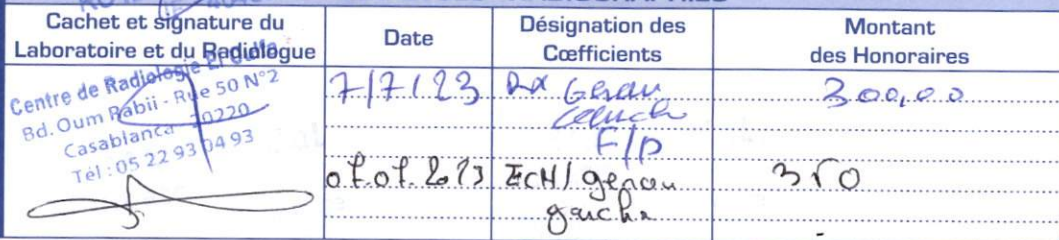 Cachet et signature du
Laboratoire et du Radiologue
Date
Désignation des
Cœfficients
Montant
des Honoraires
Centre de Radiologie
Bd. Oum Rabii - Rue 50 N°2
Casablanca 20220
Tél : 05 22 93 04 93
7/7/23
Rx Genou
F/P
300,00
07.07.2023
ECH/ genou
gauche
350